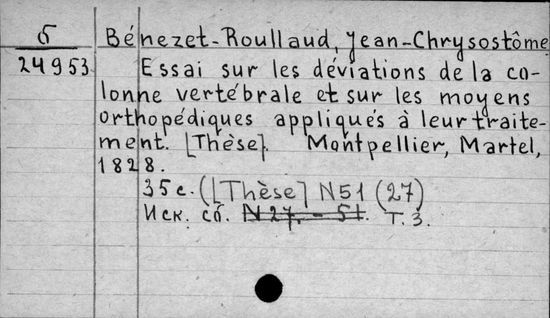 б
24953
Bénezet-Roullaud, Jean-Chrysostôme
Essai sur les déviations de la co-
lonne vertébrale et sur les moyens
orthopédiques appliqués à leur traite-
ment. [Thèse]. Montpellier, Martel,
1828.
35 с. ([Thèse] N51 (27)
Иск. сб. N 27. - 51. Т. 3.